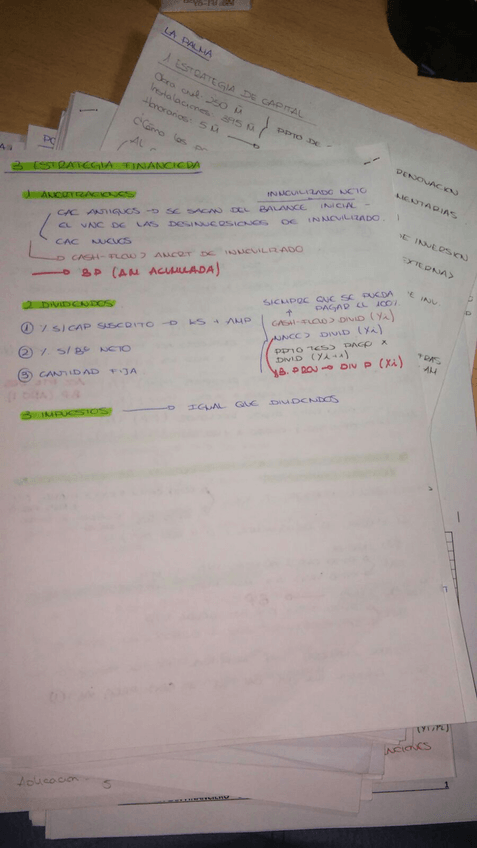 LA PALMA
1 ESTRATEGIA DE CAPITAL
Obra civil: 250 M
Instalaciones: 395 M
Honorarios: 5 M
PPTO DE
RENOVACION
MENTARIAS
E INVERSION
EXTERNA)
3 ESTRATEGIA FINANCIERA
1 AMORTIZACIONES
INMOVILIZADO NETO
CAC ANTIGUOS → SE SACAN DEL BALANCE INICIAL -
EL VNC DE LAS DESINVERSIONES DE INMOVILIZADO.
CAC NUEVOS
→ CASH-FLOW) AMORT DE INMOVILIZADO
→ BP (AM ACUMULADA)
2 DIVIDENDOS
SIEMPRE QUE SE PUEDA
PAGAR EL 100%
① % S/CAP SUSCRITO → KS + AMP
CASH-FLOW) DIVID (Xi)
② % S/Bº NETO
NNCC) DIVID (Xi)
PPTO TES) PAGO x
DIVID (Xi-1)
③ CANTIDAD FIJA
BB. PROV → DIV P (Xi)
3 IMPUESTOS → IGUAL QUE DIVIDENDOS
Aplicación 5